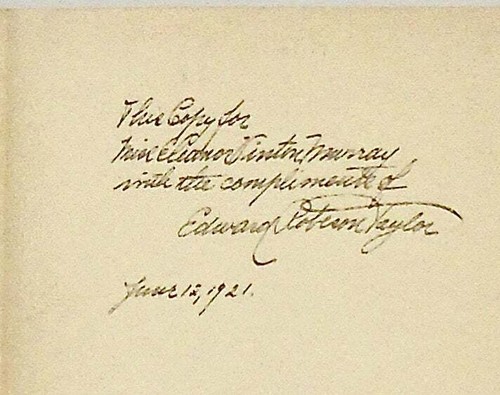 This Copy for
Miss Eleanor Vinton Murray
with the compliments of
Edward Robeson Taylor
June 12, 1921.